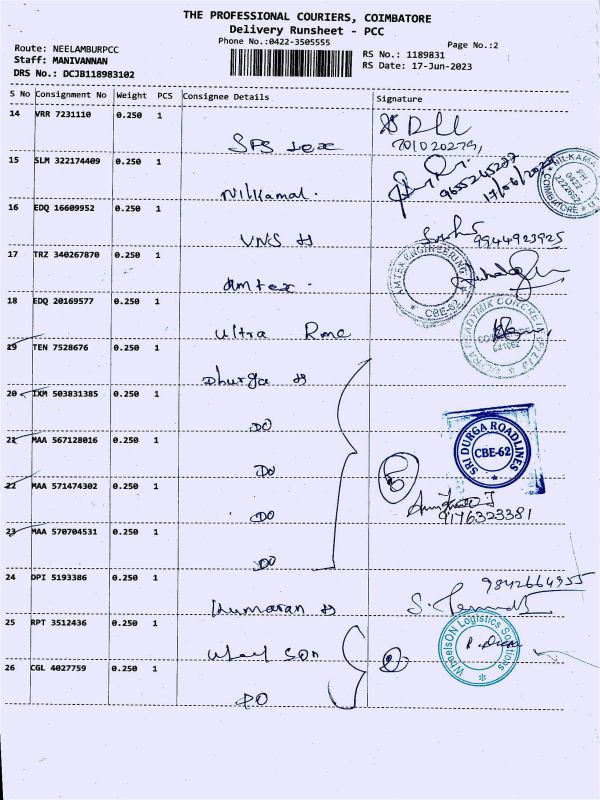 THE PROFESSIONAL COURIERS, COIMBATORE
Delivery Runsheet - PCC
Phone No.:0422-3505555
Page No.:2
Route: NEELAMBURPCC
RS No.: 1189831
Staff: MANIVANNAN
RS Date: 17-Jun-2023
DRS No.: DCJB118983102
S No Consignment No Weight PCS Consignee Details Signature
14 VRR 7231110 0.250 1
SPS tex
15 SLM 322174409 0.250 1
Nilkamal.
9655245277
17/06/2023
16 EDQ 16609952 0.250 1
VNS
9944923925
17 TRZ 340267870 0.250 1
Amtex.
AMTEX ENGINEERING
CBE-62
18 EDQ 20169577 0.250 1
Ultra Rmc
ULTRA READYMIX CONCRETE
641062
19 TEN 7528676 0.250 1
Dhurga
20 IXM 503831385 0.250 1
DO
21 MAA 567128016 0.250 1
DO
SRI DURGA ROADLINES
CBE-62
22 MAA 571474302 0.250 1
DO
5
9176323381
23 MAA 570704531 0.250 1
DO
24 DPI 5193386 0.250 1
Kumaran
9842664955
25 RPT 3512436 0.250 1
Wheel son
2
WheelsON Logistics Solutions
26 CGL 4027759 0.250 1
DO